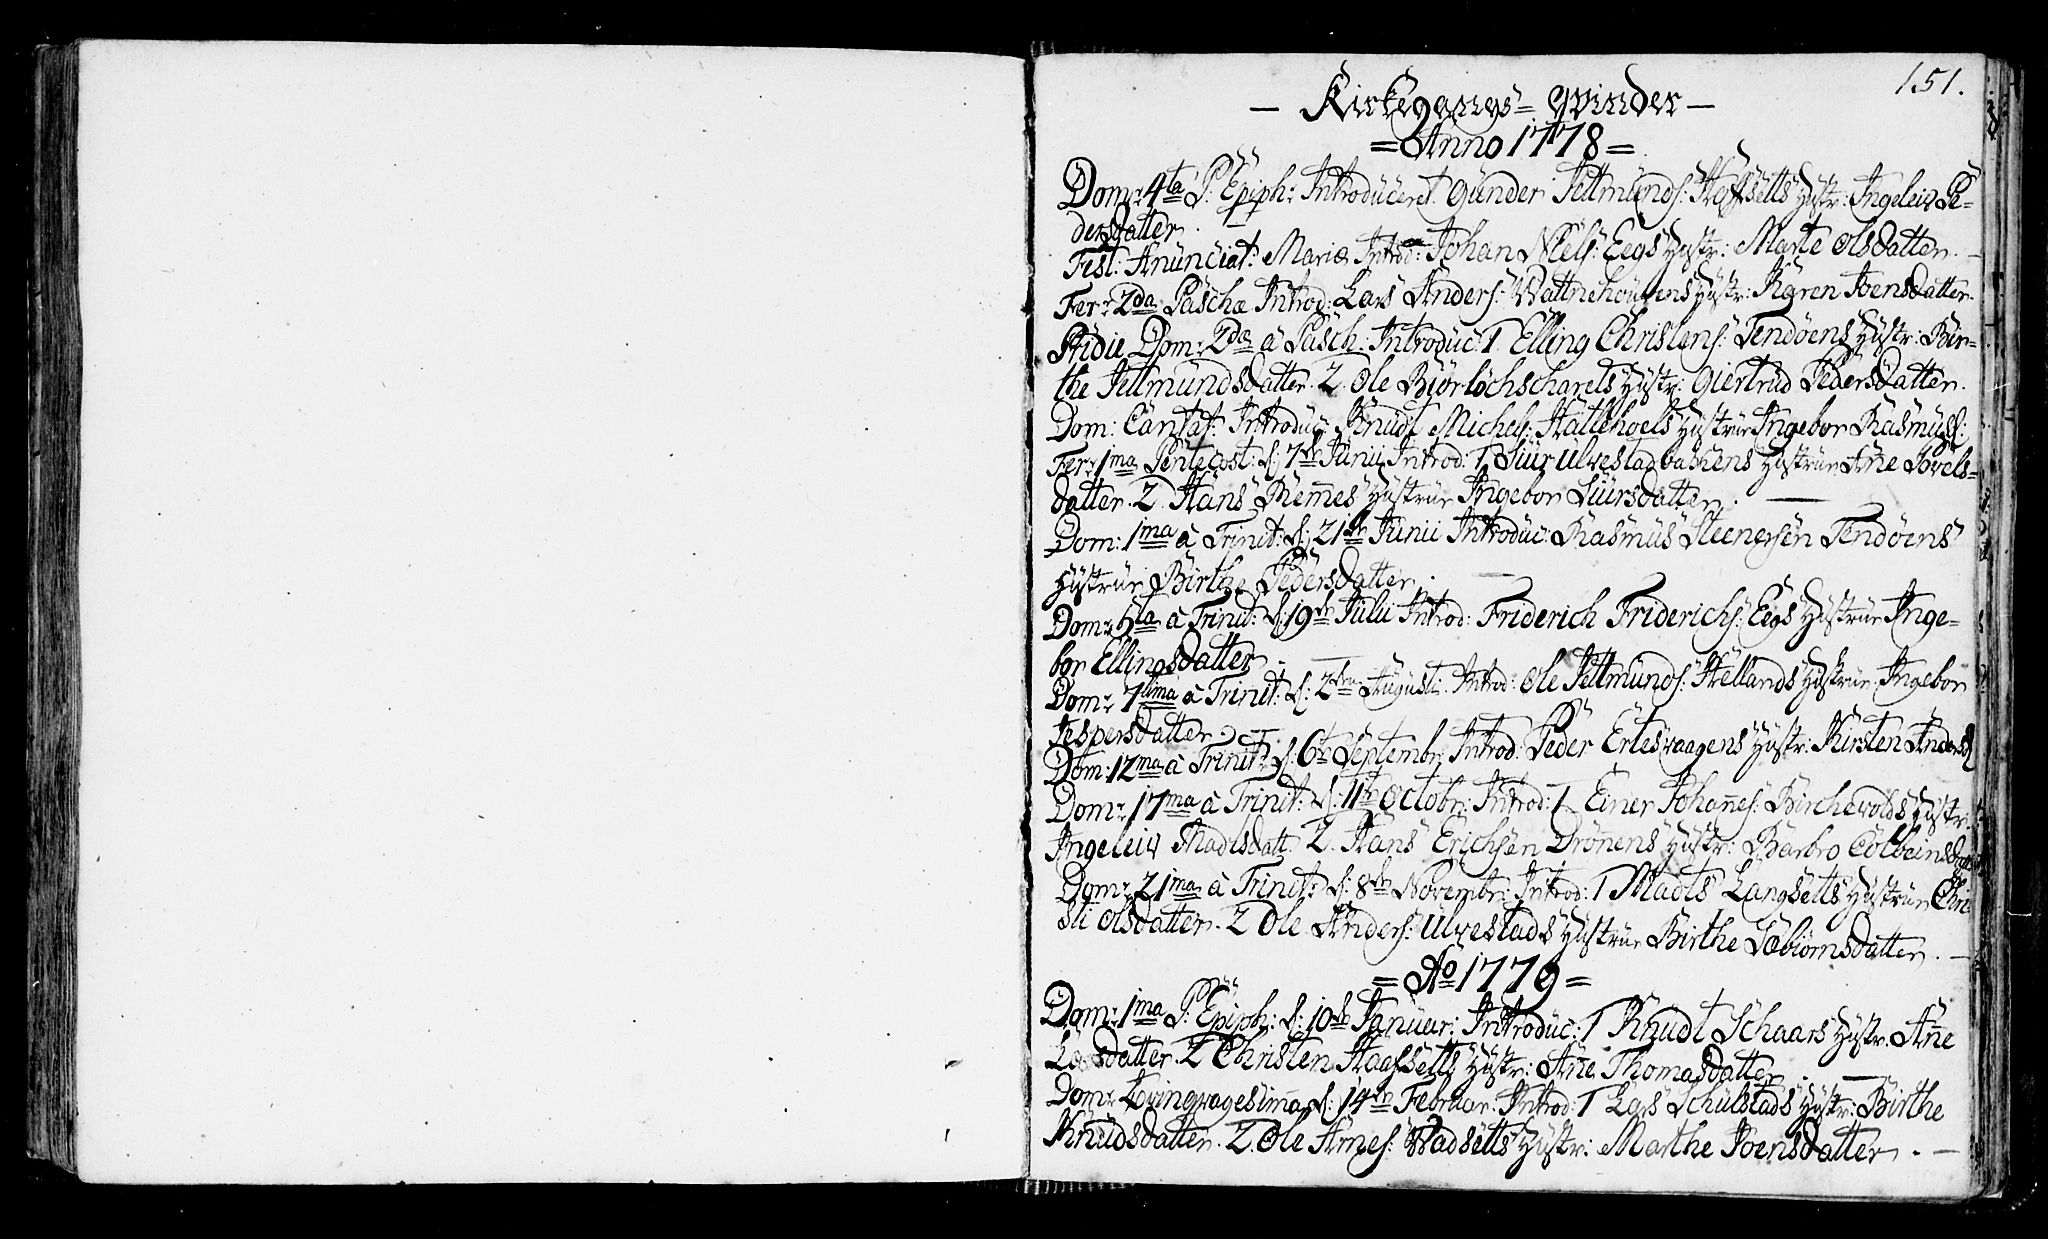 151.
— Kirkegangs= Qvinder —
= Anno 1778 =
Dom: 4ta P: Epiph: Introduceret Gunder Jettmunds: Hofsetts Hustr: Ingeleiv Pe=
dersdatter.
Fest: Anunciat: Mariæ Introd: Johan Niels: Eegs Hustr: Marte Olsdatter. —
Fer: 2da Paschæ Introd: Lars Anders: Wattnehougens Hustr: Karen Joensdatter.
Pridie Dom: 2da à Pasch: Introduc: 1. Elling Christens: Tendöens Hustr: Bir=
the Jettmundsdatter. 2. Ole Biörlöchscharets Hustr: Giertrud Pedersdatter.
Dom: Cantat: Introduc: Knudt Michels: Hattlehoels Hustrue Ingebor Rasmusd:
Fer: 1ma Pentecost: d: 7de Junii Introd: 1 Siur Ulvestadbachens Hustrue Ane Povels=
datter. 2. Hans Remmes Hustrue Ingebor Siursdatter. —
Dom: 1ma à Trinit: d: 21de Junii Introduc: Rasmus Steenersen Tendöens
Hustrue Birthe Pedersdatter. —
Dom: 5ta à Trinit: d: 19de Julii Introd: Friderich Friderichs: Eegs Hustrue Inge=
bor Ellingsdatter. —
Dom: 7tima à Trinit: d: 2den Augusti. Introd: Ole Jettmunds: Hellands Hustrue Ingebor
Jespersdatter. —
Dom: 12ma à Trinit: d: 6te Septembr: Introd: Peder Ertesvaagens Hustr: Kirsten Andersd:
Dom: 17ma à Trinit: d: 11te Octobr: Introd: 1 Einer Johannes: Birchevolds Hustr:
Ingeleiv Madtsdatt: 2. Hans Erichsen Drönens Hustr: Barbro Colbeinsdatter
Dom: 21ma à Trinit: d: 8de Novembr: Introd: 1 Madts Langsetts Hustrue Chri
sti Olsdatter. 2 Ole Anders: Ulvestads Hustrue Birthe Sæbiörnsdatter. —
= Ao 1779 =
Dom: 1ma P: Epiph: d: 10de Januar: Introduc: 1 Knudt Schaars Hustr: Ane
Larsdatter. 2 Christen Haafsetts Hustr: Ane Thomasdatter. —
Dom: Qvinqvagesima d: 14de Februar: Introd: 1 Lars Schulstads Hustr: Birthe
Knudsdatter. 2. Ole Arnes: Wadsetts Hustr: Marthe Joensdatter. —